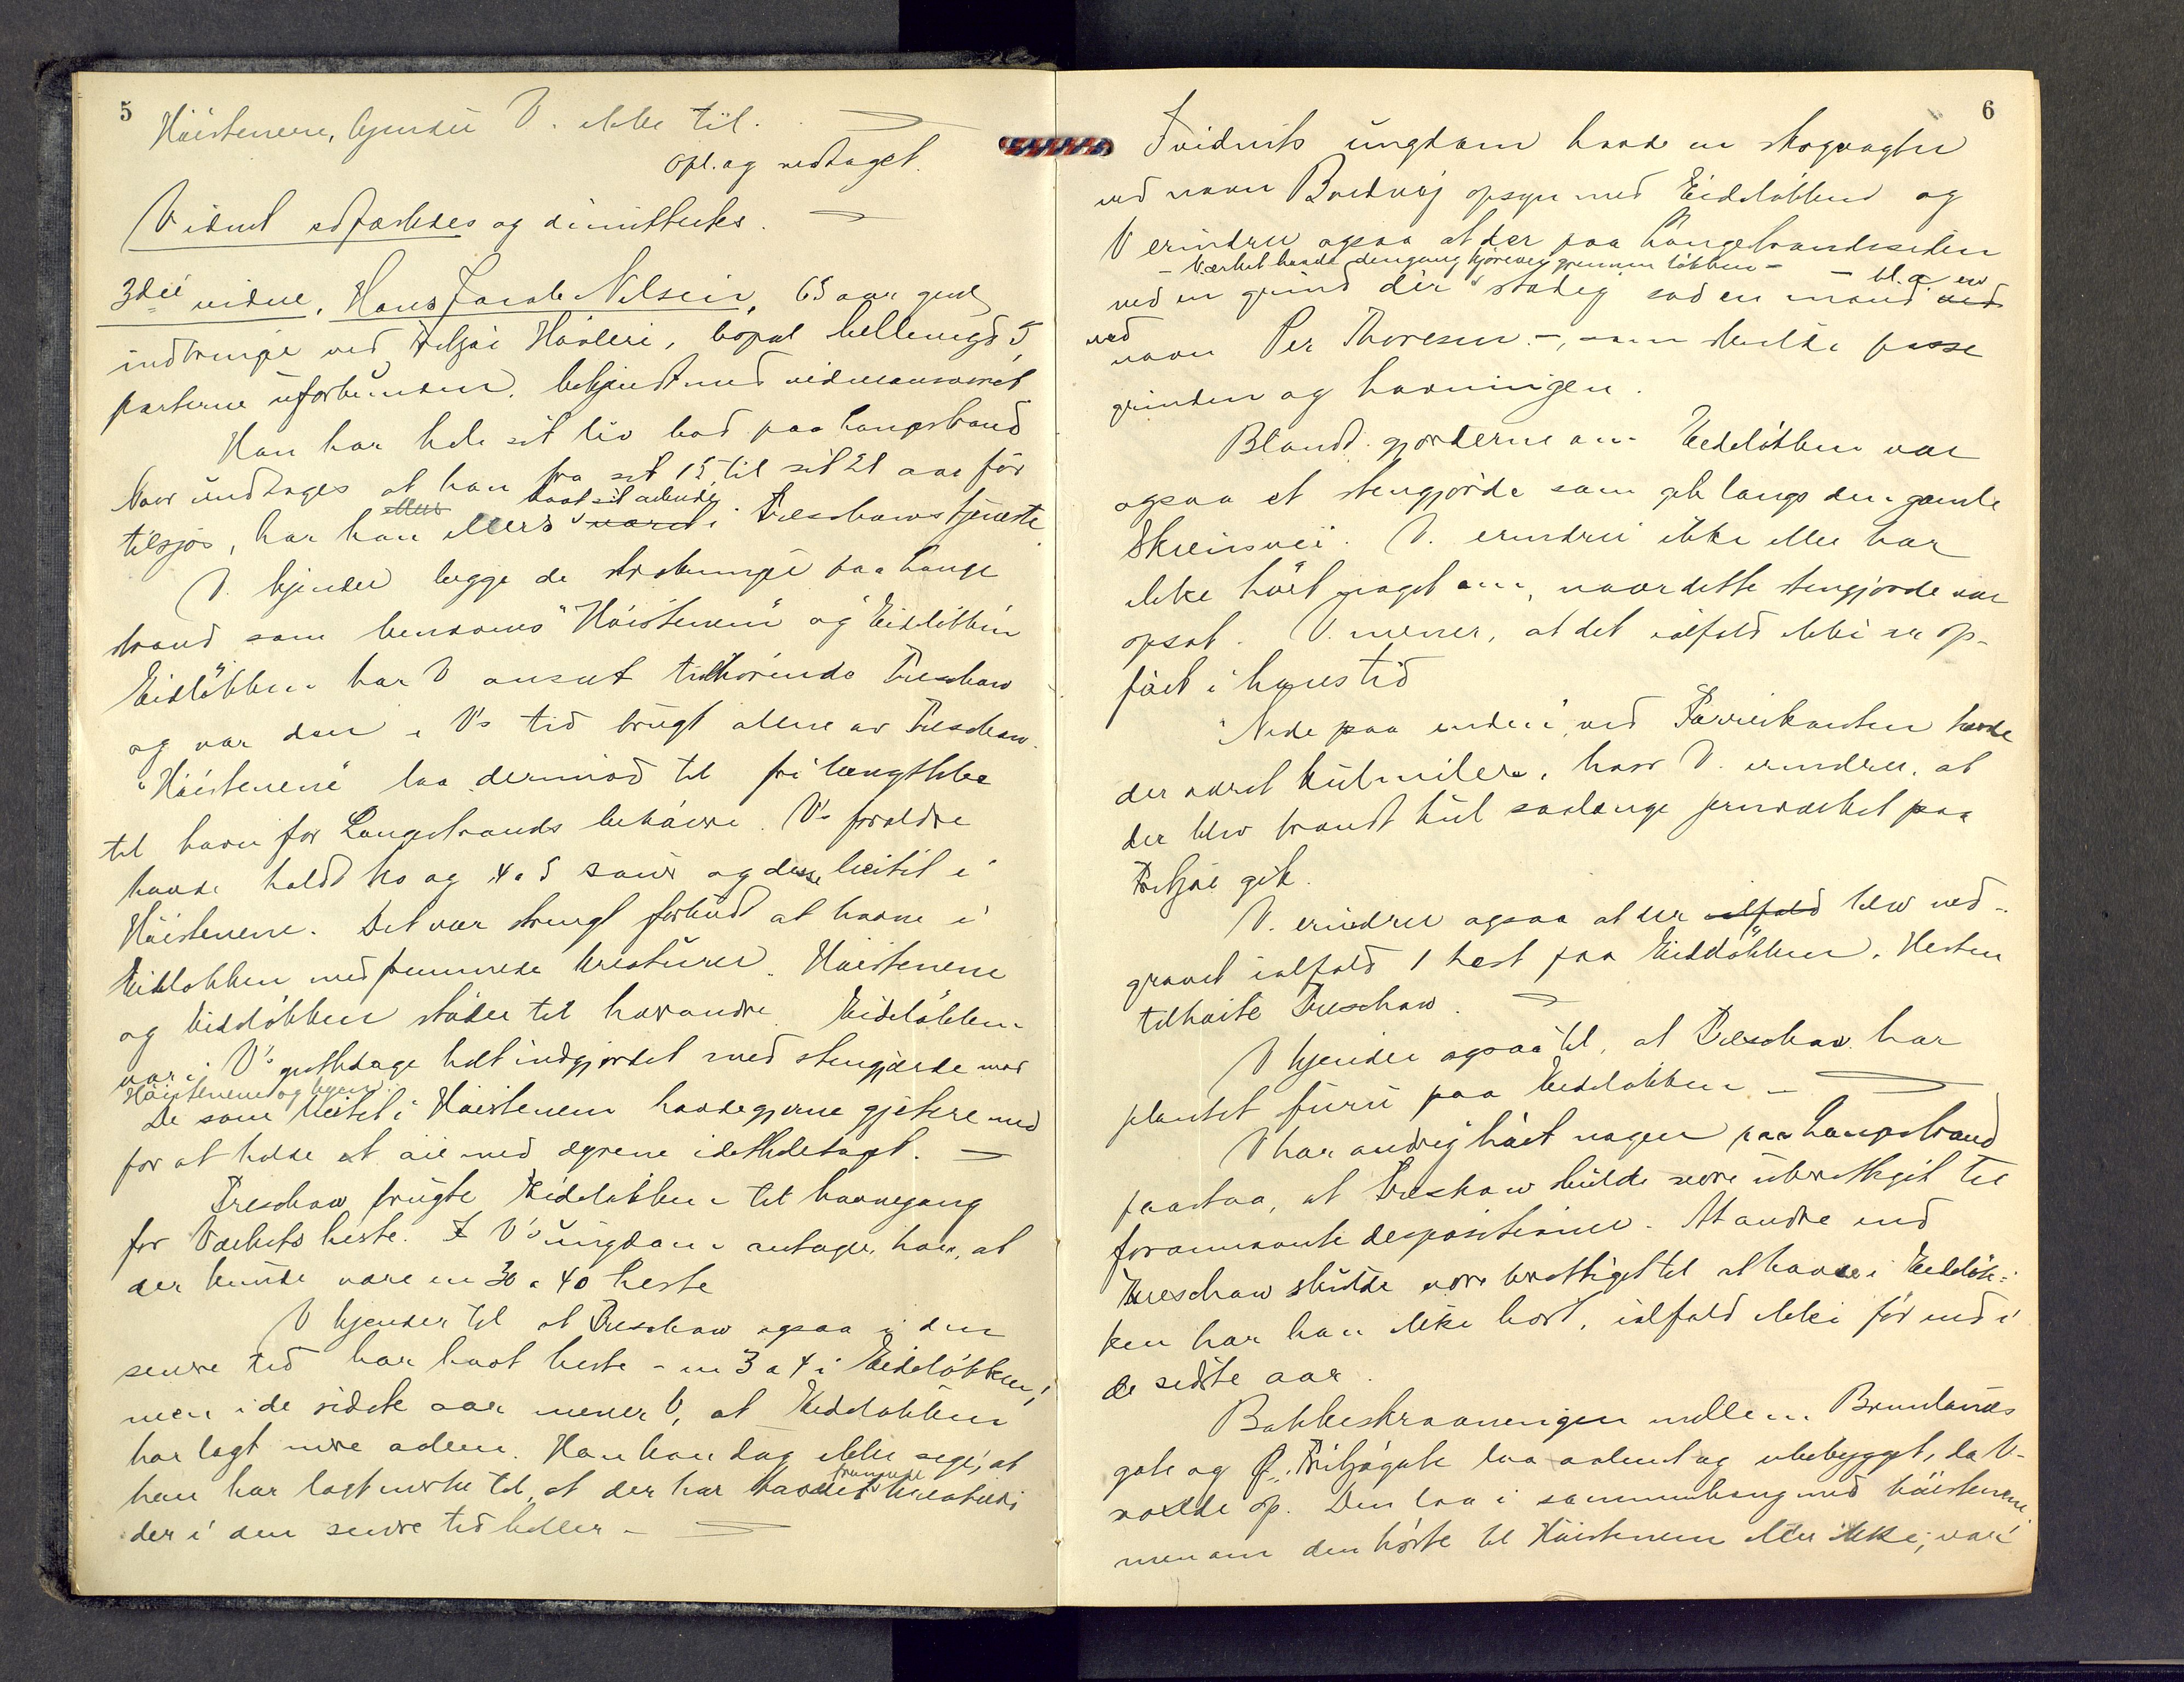 5
Höistenene, kjender V. ikke til.
Opl. og vedtaget.
Vidnet edfæstedes og dimitteredes.
3die vidne, Hans Jacob Nilsen, 65 aar gml,
ved Fritzøe Høvleri, bopæl Hellemgd 5,
parterne uforbunden, bekjendt med vidneansvaret.
Han har hele sit liv bod paa Langestrand
Naar undtages at han fra sit 15 til sit 21 aar för
tilsjös, har han ellers havt sit arbeide i Treschows tjeneste.
V. kjender begge de strækninger paa Lange
strand som benævnes "Höistenene" og Eidslökken
Eidslökken har V anseet tilhörende Treschow
og var den i V's tid brugt alene av Treschow.
"Höistenene" laa derimod til fri benyttelse
til havn for Langestrands beboere. V's forældre
havde holdt ko og 4 a 5 sauer og disse beitet i
Höistenene. Det var strengt forbudt at havne i
Eidslökken med fremmede kreaturer. Höistenene
og Eidslökken stöder til hverandre. Eidslökken
var i V's guttedage helt indgjerdet med stengjærde mod
Höistenene og byen.
De som beitet i Höistenene havde gjerne gjetere med
for at holde et öie med dyrene idethele taget.
Treschow brugte Eidslökken til havnegang
for Værkets heste. I V's ungdom antager han, at
der kunde være en 30 a 40 heste
V kjender til at Treschow ogsaa i den
senere tid har havt heste - en 3 a 4 i Eidslökken,
men i de sidste aar mener V, at Eidslökken
har lagt mere aalene. Han kan dog ikke sige, at
han har lagt mærke til, at der har havnet fremmede kreaturer
der i den senere tid heller -
6
I vidnets ungdom havde en skogvogter
ved navn Bredvej opsyn med Eidslökken og
V erindrer ogsaa at der paa Langestrandssiden
- Værket havde dengang kjörevei gjennem lökken - - bl. a. en
ved en grind der stadig sad en mand ved
ved
navn Per Thoresen -, som skulde passe
grinden og havningen.
Blandt gjærderne om Eidslökken var
ogsaa et stengjerde som gik langs den gamle
Skiensvei. V. erindrer ikke eller har
ikke hört noget om, naar dette stengjerde var
opsat. V. mener, at det ialfald ikke er op-
fört i hans tid
"Nede paa enden", ved Farriskanten havde
der været kulmiler, hvor V. erindrer, at
der blev brændt kul saalænge jernværket paa
Fritzöe gik.
V. erindrer ogsaa at der ialfald blev ned-
gravet ialfald 1 hest paa Eidslökken. Hesten
tilhörte Treschow.
V kjender ogsaa til, at Treschow har
plantet furu paa Eidslökken -
V har andrig hört nogen paa Langestrand
paastaa, at Treschow skulde være uberettiget til
forannævnte despositioner. At andre end
Treschow skulde være berettiget til at havne i Eidslök-
ken har han ikke hört, ialfald ikke för end i
de sidste aar.
Bakkeskraaningen mellem Brunlanæs
gate og Fritzögate laa aalent og ubebygget, da V.
voxte op. Den laa i sammenhæng med höistenene
men om den hörte til Höistenene eller ikke, var